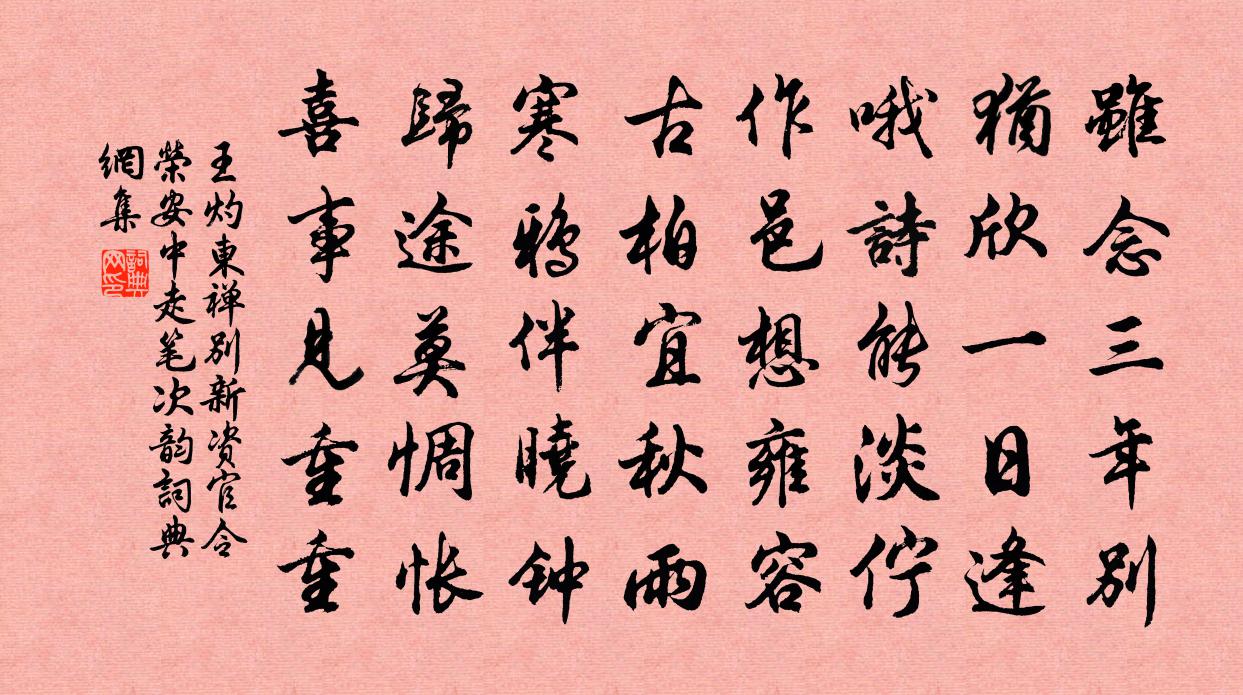 雖念三年別
猶欣一日逢
哦詩能淡佇
作邑想雍容
古柏宜秋雨
寒鴉伴曉钟
歸途莫惆怅
喜事見重重
王灼東禅別新资官令
榮安中走笔次韵詞典
網集
詞典
网印